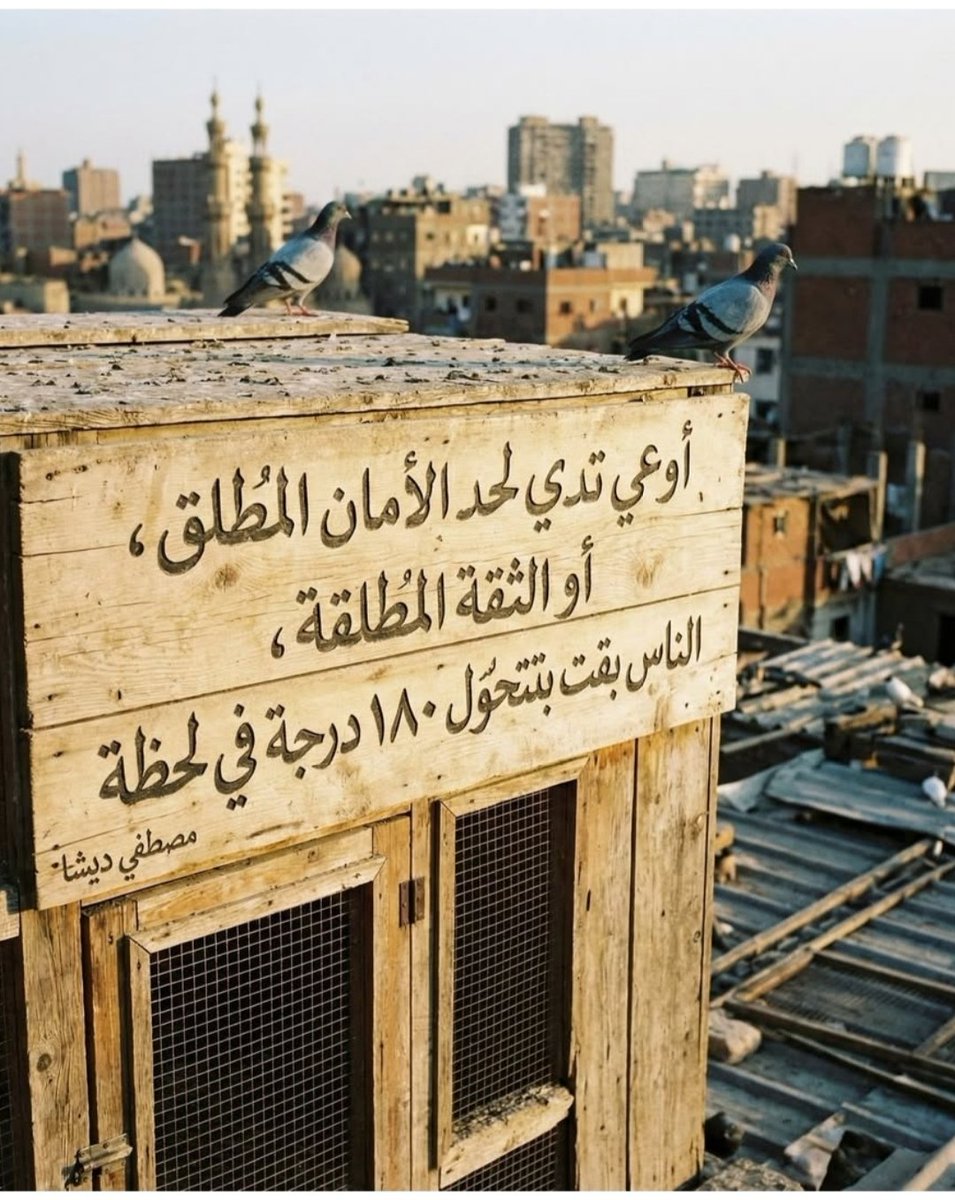 أوعي تدي لحد الأمان المُطلق،
أو الثقة المُطلقة،
الناس بقت بتتحوّل ١٨٠ درجة في لحظة
مصطفي ديشا